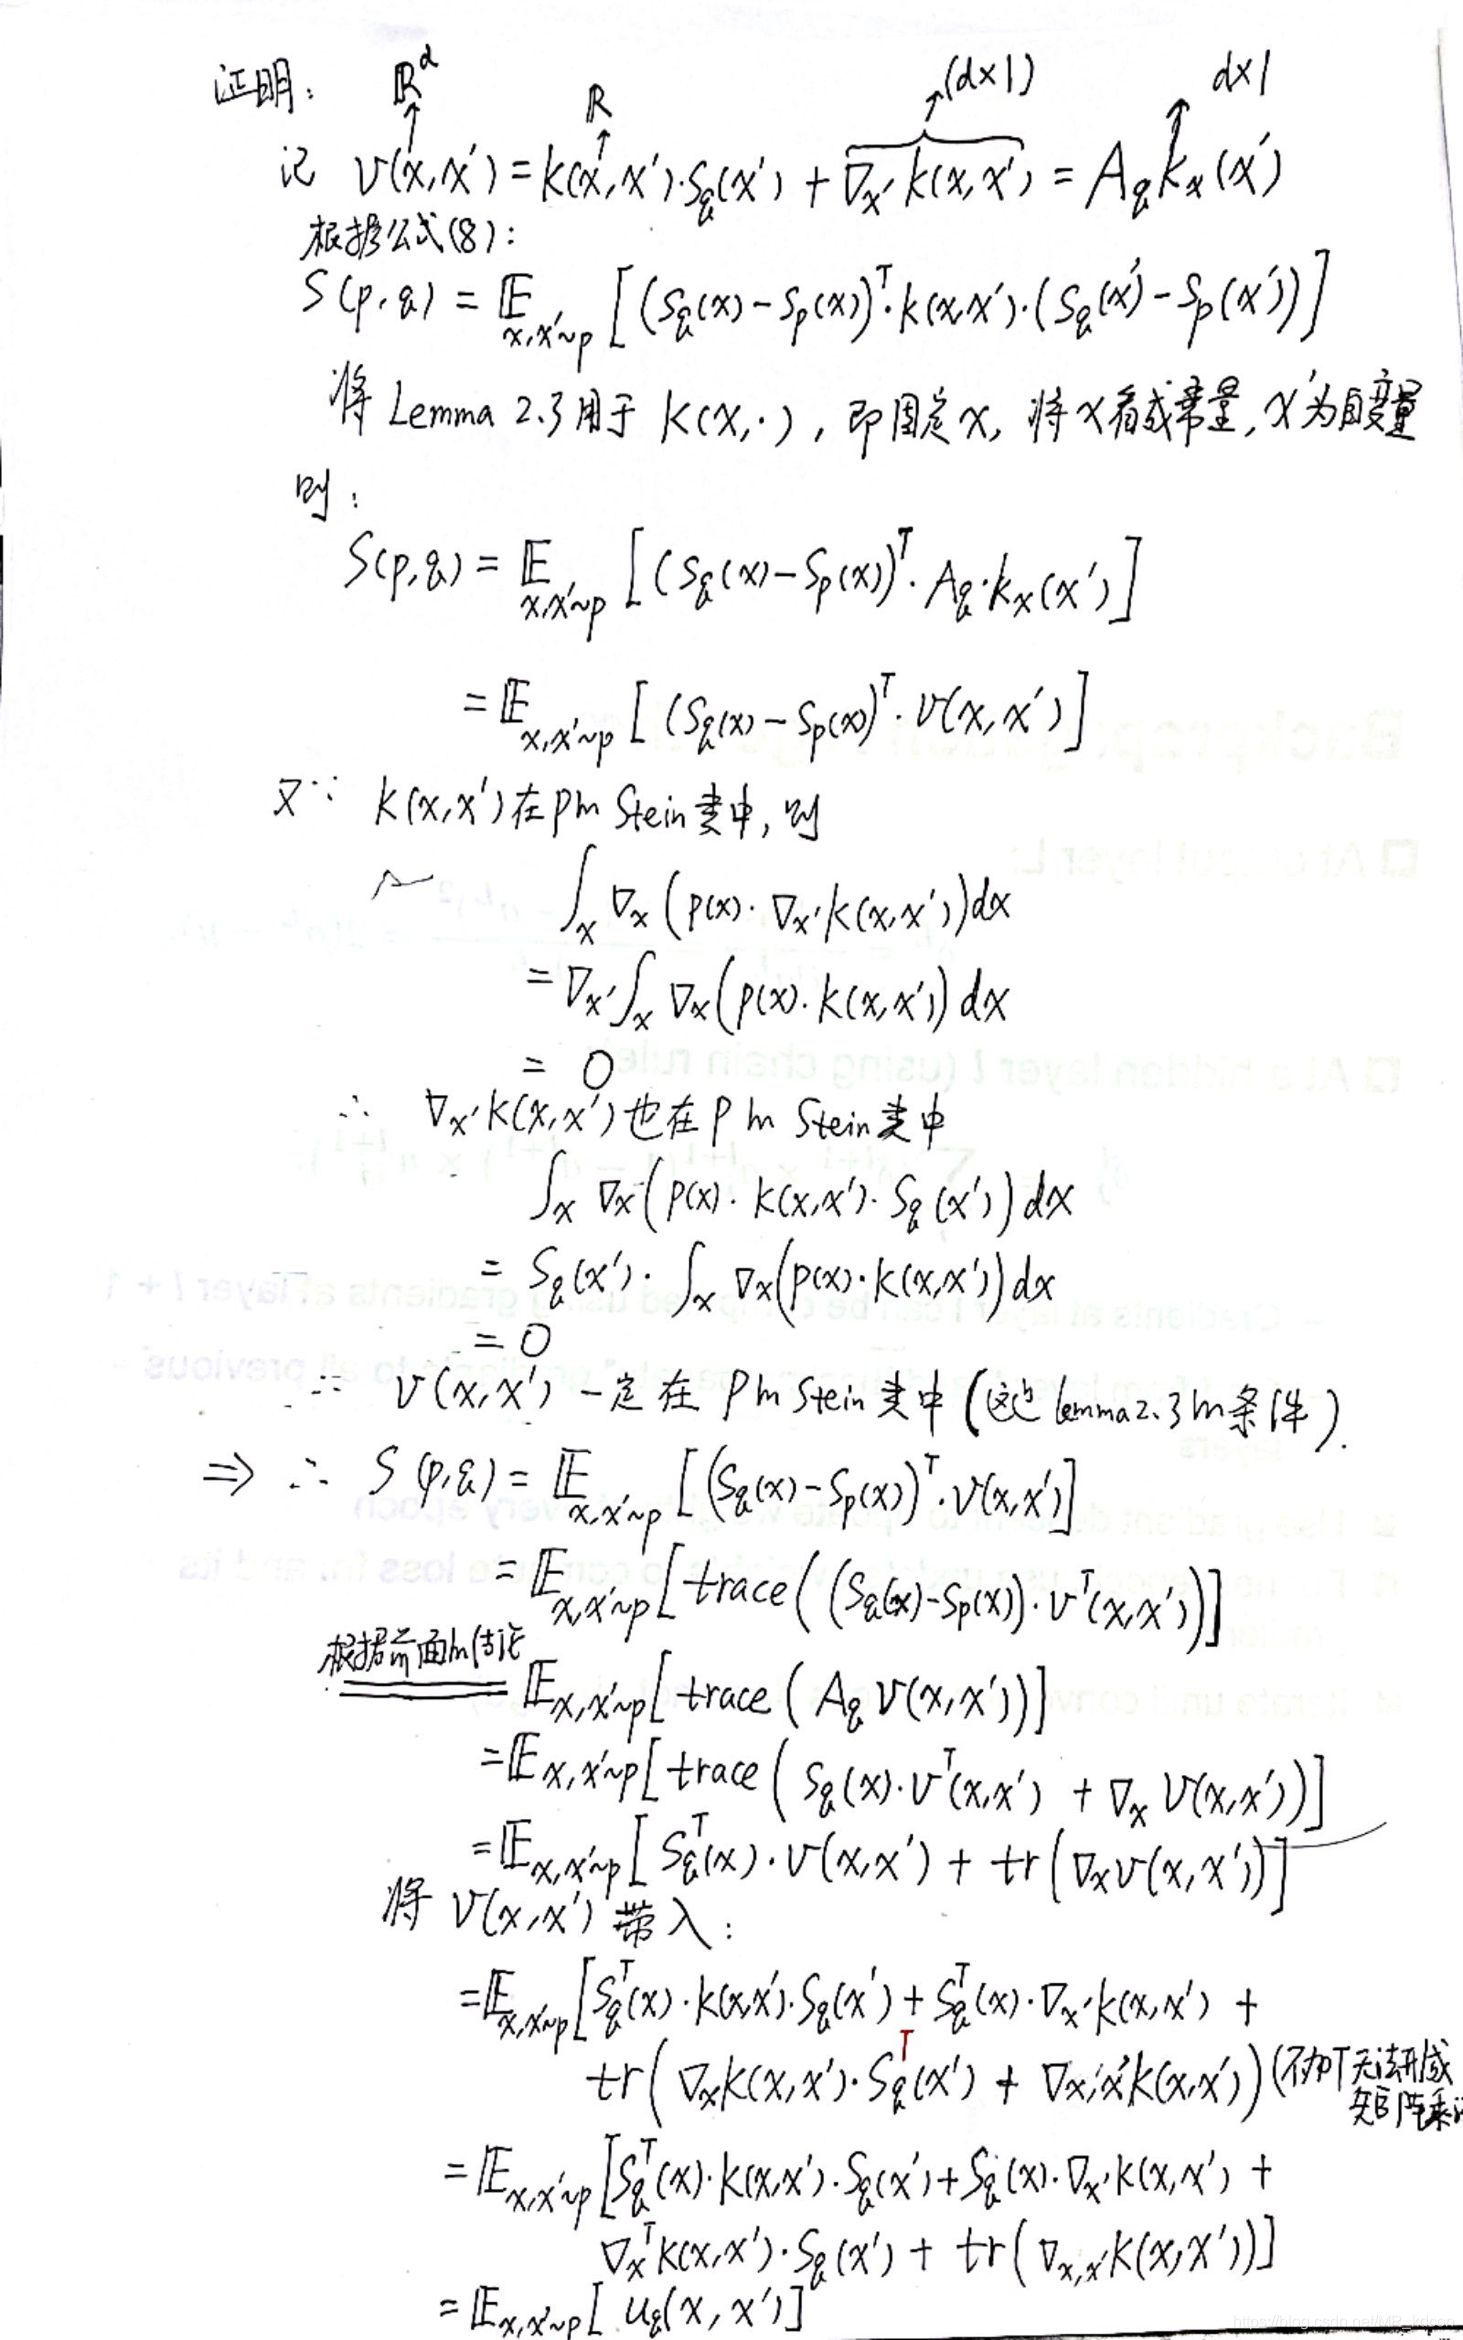 证明:
ℝᵈ ℝ (d×1) d×1
记 v(x,x′) = k(x,x′)·S_q(x′) + ∇_x′ k(x,x′) = A_q k_x(x′)
根据公式(8):
S(p,q) = 𝔼_{x,x′~p} [(S_q(x) − S_p(x))ᵀ·k(x,x′)·(S_q(x′) − S_p(x′))]
将 Lemma 2.3用于 k(x,·), 即固定x, 将x看成常量, x′为自变量
则:
S(p,q) = 𝔼_{x,x′~p} [(S_q(x) − S_p(x))ᵀ·A_q·k_x(x′)]
= 𝔼_{x,x′~p} [(S_q(x) − S_p(x))ᵀ·v(x,x′)]
又∵ k(x,x′)在p的Stein类中, 则
∫_x ∇_x (p(x)·∇_x′ k(x,x′))dx
= ∇_x′ ∫_x ∇_x (p(x)·k(x,x′)) dx
= 0
∴ ∇_x′ k(x,x′)也在p的Stein类中
∫_x ∇_x (p(x)·k(x,x′)·S_q(x′)) dx
= S_q(x′)·∫_x ∇_x (p(x)·k(x,x′)) dx
= 0
∴ v(x,x′) 一定在p的Stein类中 (这是lemma2.3的条件).
⇒ ∴ S(p,q) = 𝔼_{x,x′~p} [(S_q(x) − S_p(x))ᵀ·v(x,x′)]
= 𝔼_{x,x′~p} [trace((S_q(x) − S_p(x))·vᵀ(x,x′))]
根据前面的
= 𝔼_{x,x′~p} [trace(A_q v(x,x′))]
= 𝔼_{x,x′~p} [trace(S_q(x)·vᵀ(x,x′) + ∇_x v(x,x′))]
= 𝔼_{x,x′~p} [S_qᵀ(x)·v(x,x′) + tr(∇_x v(x,x′))]
将 v(x,x′) 带入:
= 𝔼_{x,x′~p} [S_qᵀ(x)·k(x,x′)·S_q(x′) + S_qᵀ(x)·∇_x′ k(x,x′) +
tr(∇_x k(x,x′)·S_qᵀ(x′) + ∇_{x,x′} k(x,x′)) (不加T无法形成
矩阵乘
= 𝔼_{x,x′~p} [S_qᵀ(x)·k(x,x′)·S_q(x′) + S_q(x)·∇_x′ k(x,x′) +
∇_xᵀ k(x,x′)·S_q(x′) + tr(∇_{x,x′} k(x,x′))]
= 𝔼_{x,x′~p} [u_q(x,x′)]